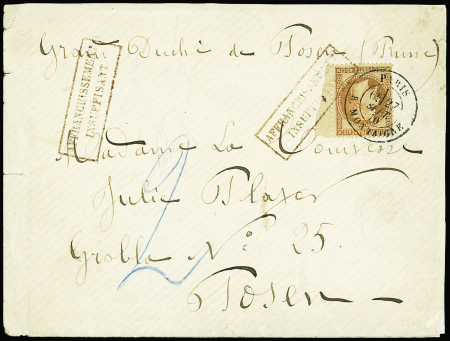 Grand Duché de Posen (Prusse)
AFFRANCHISSEMENT
INSUFFISANT
AFFRANCHISSEMENT
INSUFFISANT
PARIS
R. MONTAIGNE
Madame La
Julie Plaxer
Grobla No: 25.
Posen
2